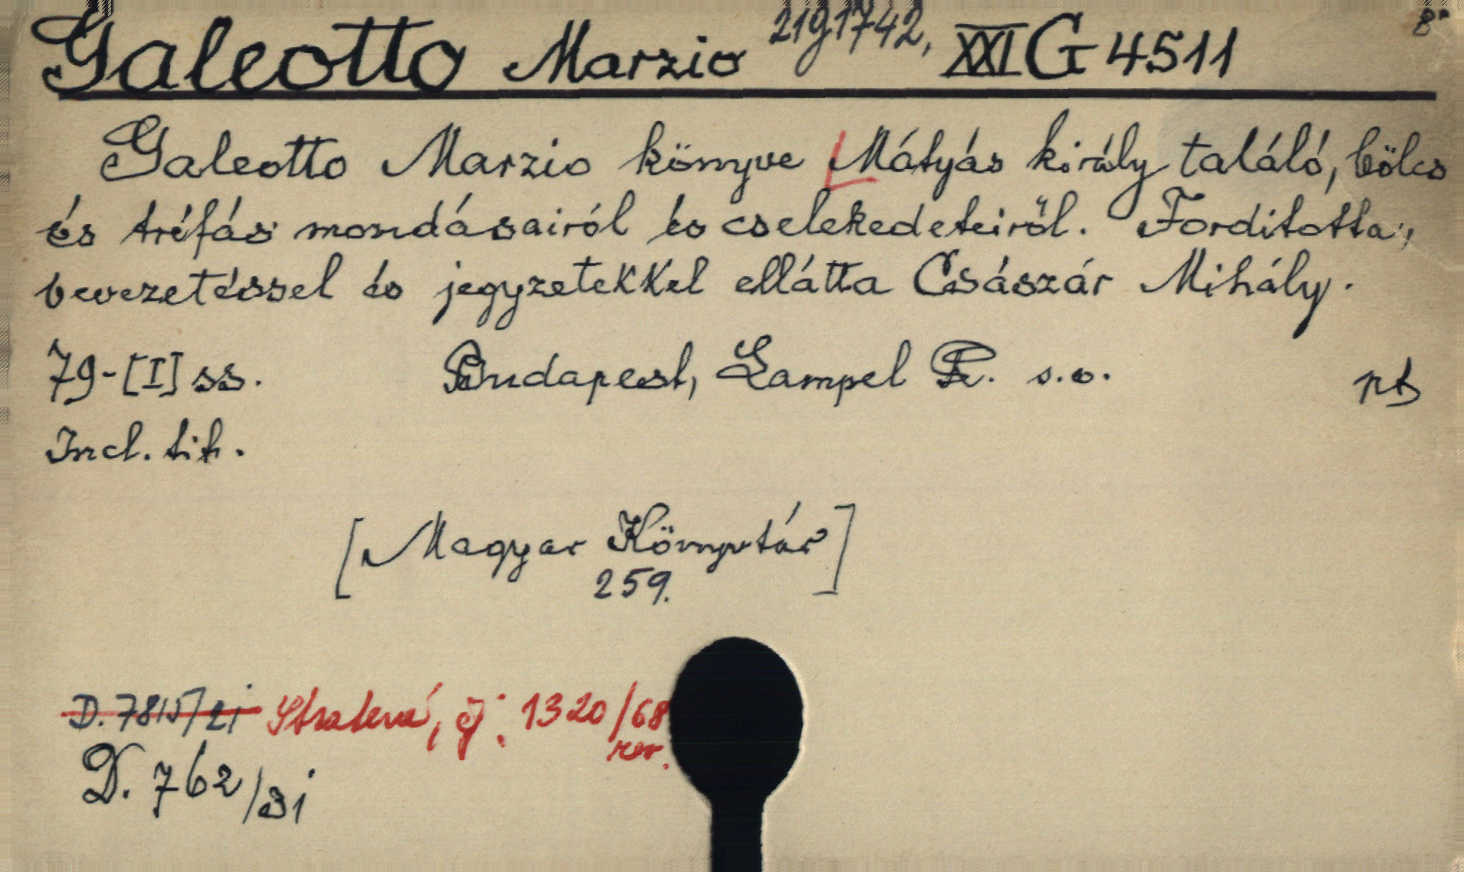 Galeotto Marzio 21g1742, XXI G 4511 8°
Galeotto Marzio könyve Mátyás király találó, bölcs
és tréfás mondásairól és cselekedeteiről. Forditotta,
bevezetéssel és jegyzetekkel ellátta Császár Mihály.
79-[I] ss. Budapest, Lampel R. s.a.
Incl. tit.
[Magyar Könyvtár]
259.
D. 7815/2i Stratená, čj: 1320/68
rev.
D. 762/3i